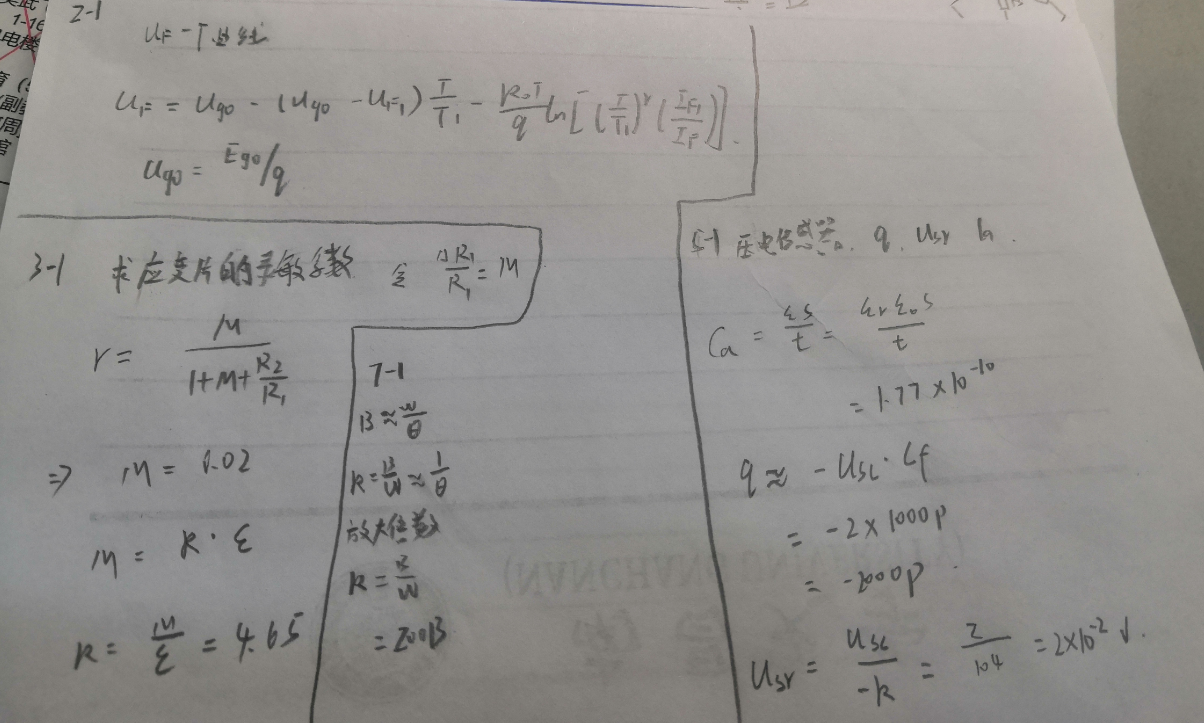 2-1
U_F - T 曲线
U_F = U_g0 - (U_g0 - U_F1) T/T_1 - K_0T/q ln[(T/T_1)^r (I_F1/I_F)].
U_g0 = E_g0/q
3-1 求应变片的灵敏系数 令 ΔR_1/R_1 = M
r = M/(1+M+R_2/R_1)
⇒ M = 0.02
M = K · ε
K = M/ε = 4.65
7-1
B ≈ W/θ
K = B/W ≈ 1/θ
放大倍数
K = B/W
= 200B
5-1 压电传感器. q. U_sr
C_a = εS/t = ε_r ε_0 S/t
= 1.77 × 10^-10
q ≈ - U_sc · C_f
= -2 × 1000P
= -2000P.
U_sr = U_sc/-K = 2/10^4 = 2×10^-2 V.
(NANCHANG UNIVERSITY)
1-16
电楼